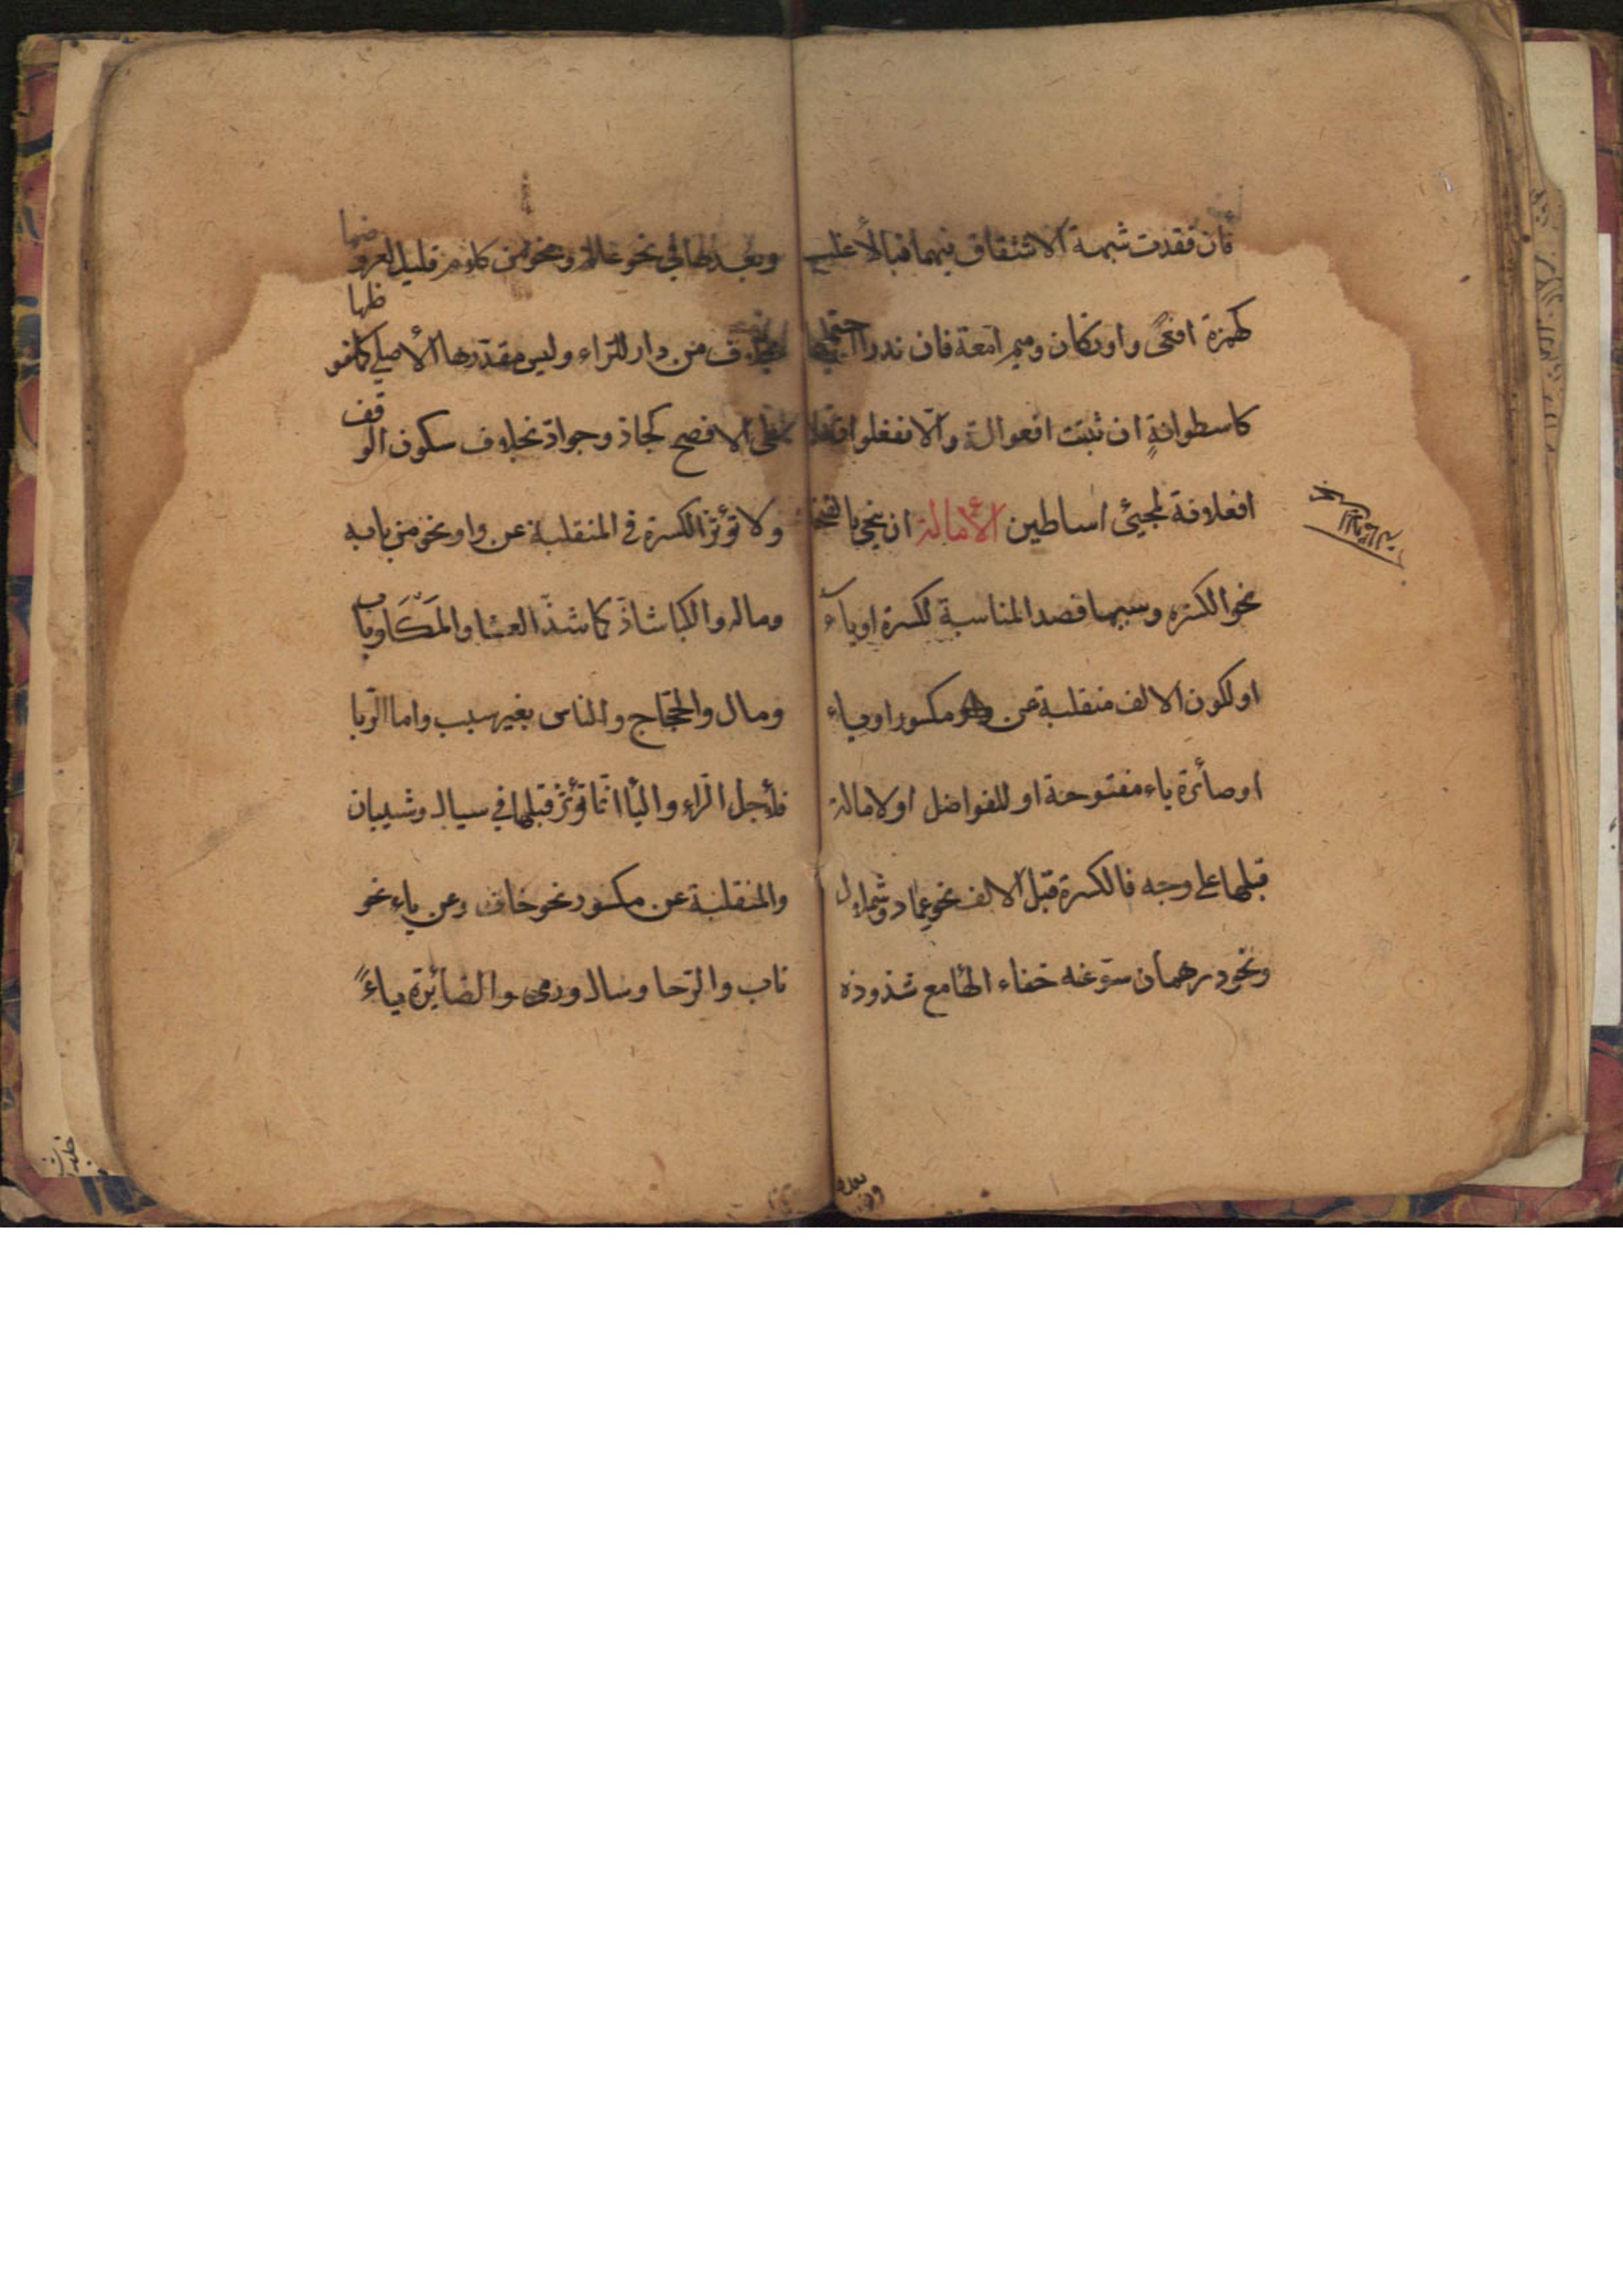 فان فقدت شبهة الاشتقاق فيهما فبالأغلب
كهمزة افعىً واوتكان وميم امّعة فان ندرا احتملهما
كاسطوانةٍ ان ثبتت افعوالة والّا ففعلوانة لا
افعلانة لمجيئ اساطين الأمالة ان ينحى بالفتحة
نحو الكسرة وسببها قصد المناسبة لكسرة او ياء
او لكون الالف منقلبة عن مكسور او ياء
او صائرة ياء مفتوحة او للفواصل او لامالة
قبلها على وجه فالكسرة قبل الالف نحو عماد وشملال
ونحو درهمان سوّغه خفاء الها مع شذوذه
وبعدها في نحو عالم ونحو من كلام قليل لعروضها
بخلاف من دار للرّاء وليس مقدّرها الأصلي كملفوظها
على الافصح كجادّ وجوادّ بخلاف سكون الوقف
ولا تؤثر الكسرة في المنقلبة عن واو نحو من بابه
وماله والكبا شاذّ كما شذّ العشا والمَكَا وباب
ومال والحجّاج والناس بغير سبب واما الرّبا
فلأجل الرّاء واليا انّما تؤثر قبلها في سيال وشيبان
والمنقلبة عن مكسور نحو خاف وعن ياء نحو
ناب والرّحا وسال ورمى والصّائرة ياءً